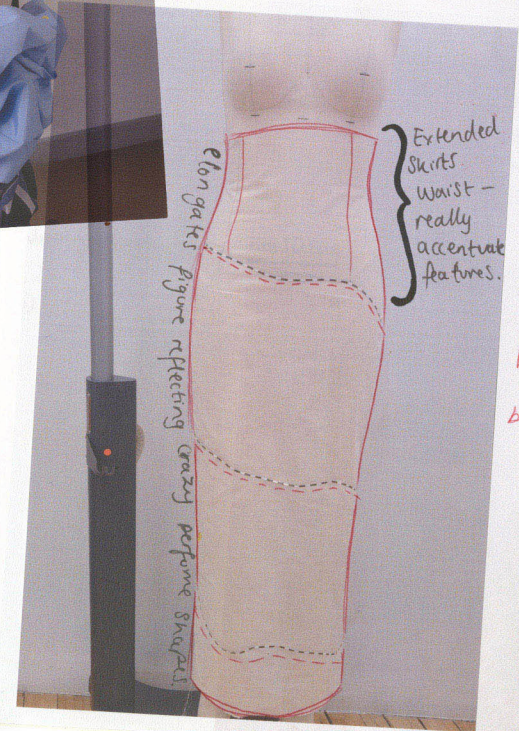 Extended
Skirts
waist –
really
accentuate
features.
elongates figure reflecting crazy perfume shapes.